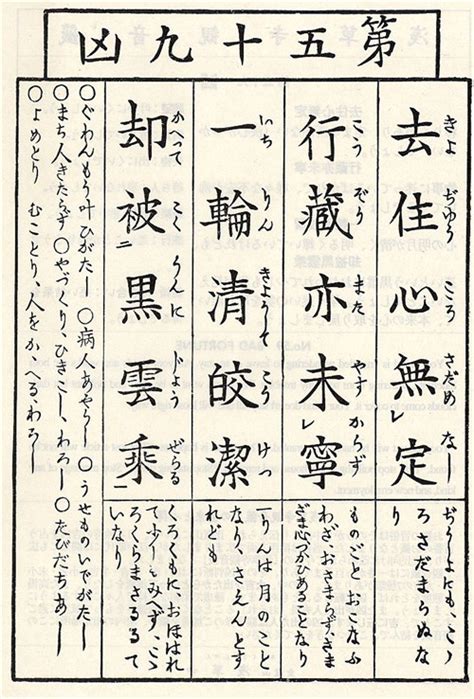 第五十九凶
去住心無定
きよ ぢゆう こころ さだめ な
行藏亦未寧
こう ぞう また やす からず
一輪清皎潔
いち りん きよう こう けつ
却被黒雲乘
かへって こく うんに じょう ぜらる
ぢうしよにも、こゝ
ろさだまらぬな
り
ものごとをおこなふ
わざ、おさまらず、さま
ざま心づかひあることなり
一りんは月のこと
なり
れども
くろくもに、おほはれ
て少しもみへず、こゝ
ろくらまさるゝて
いなり
○ぐわんもう叶ひがたし○病人あやうし○うせものいでがたし
○まち人きたらず○やづくり、ひきこし、わろし○たびだちあし
○よめとり むことり 人をかゝへる、わろし